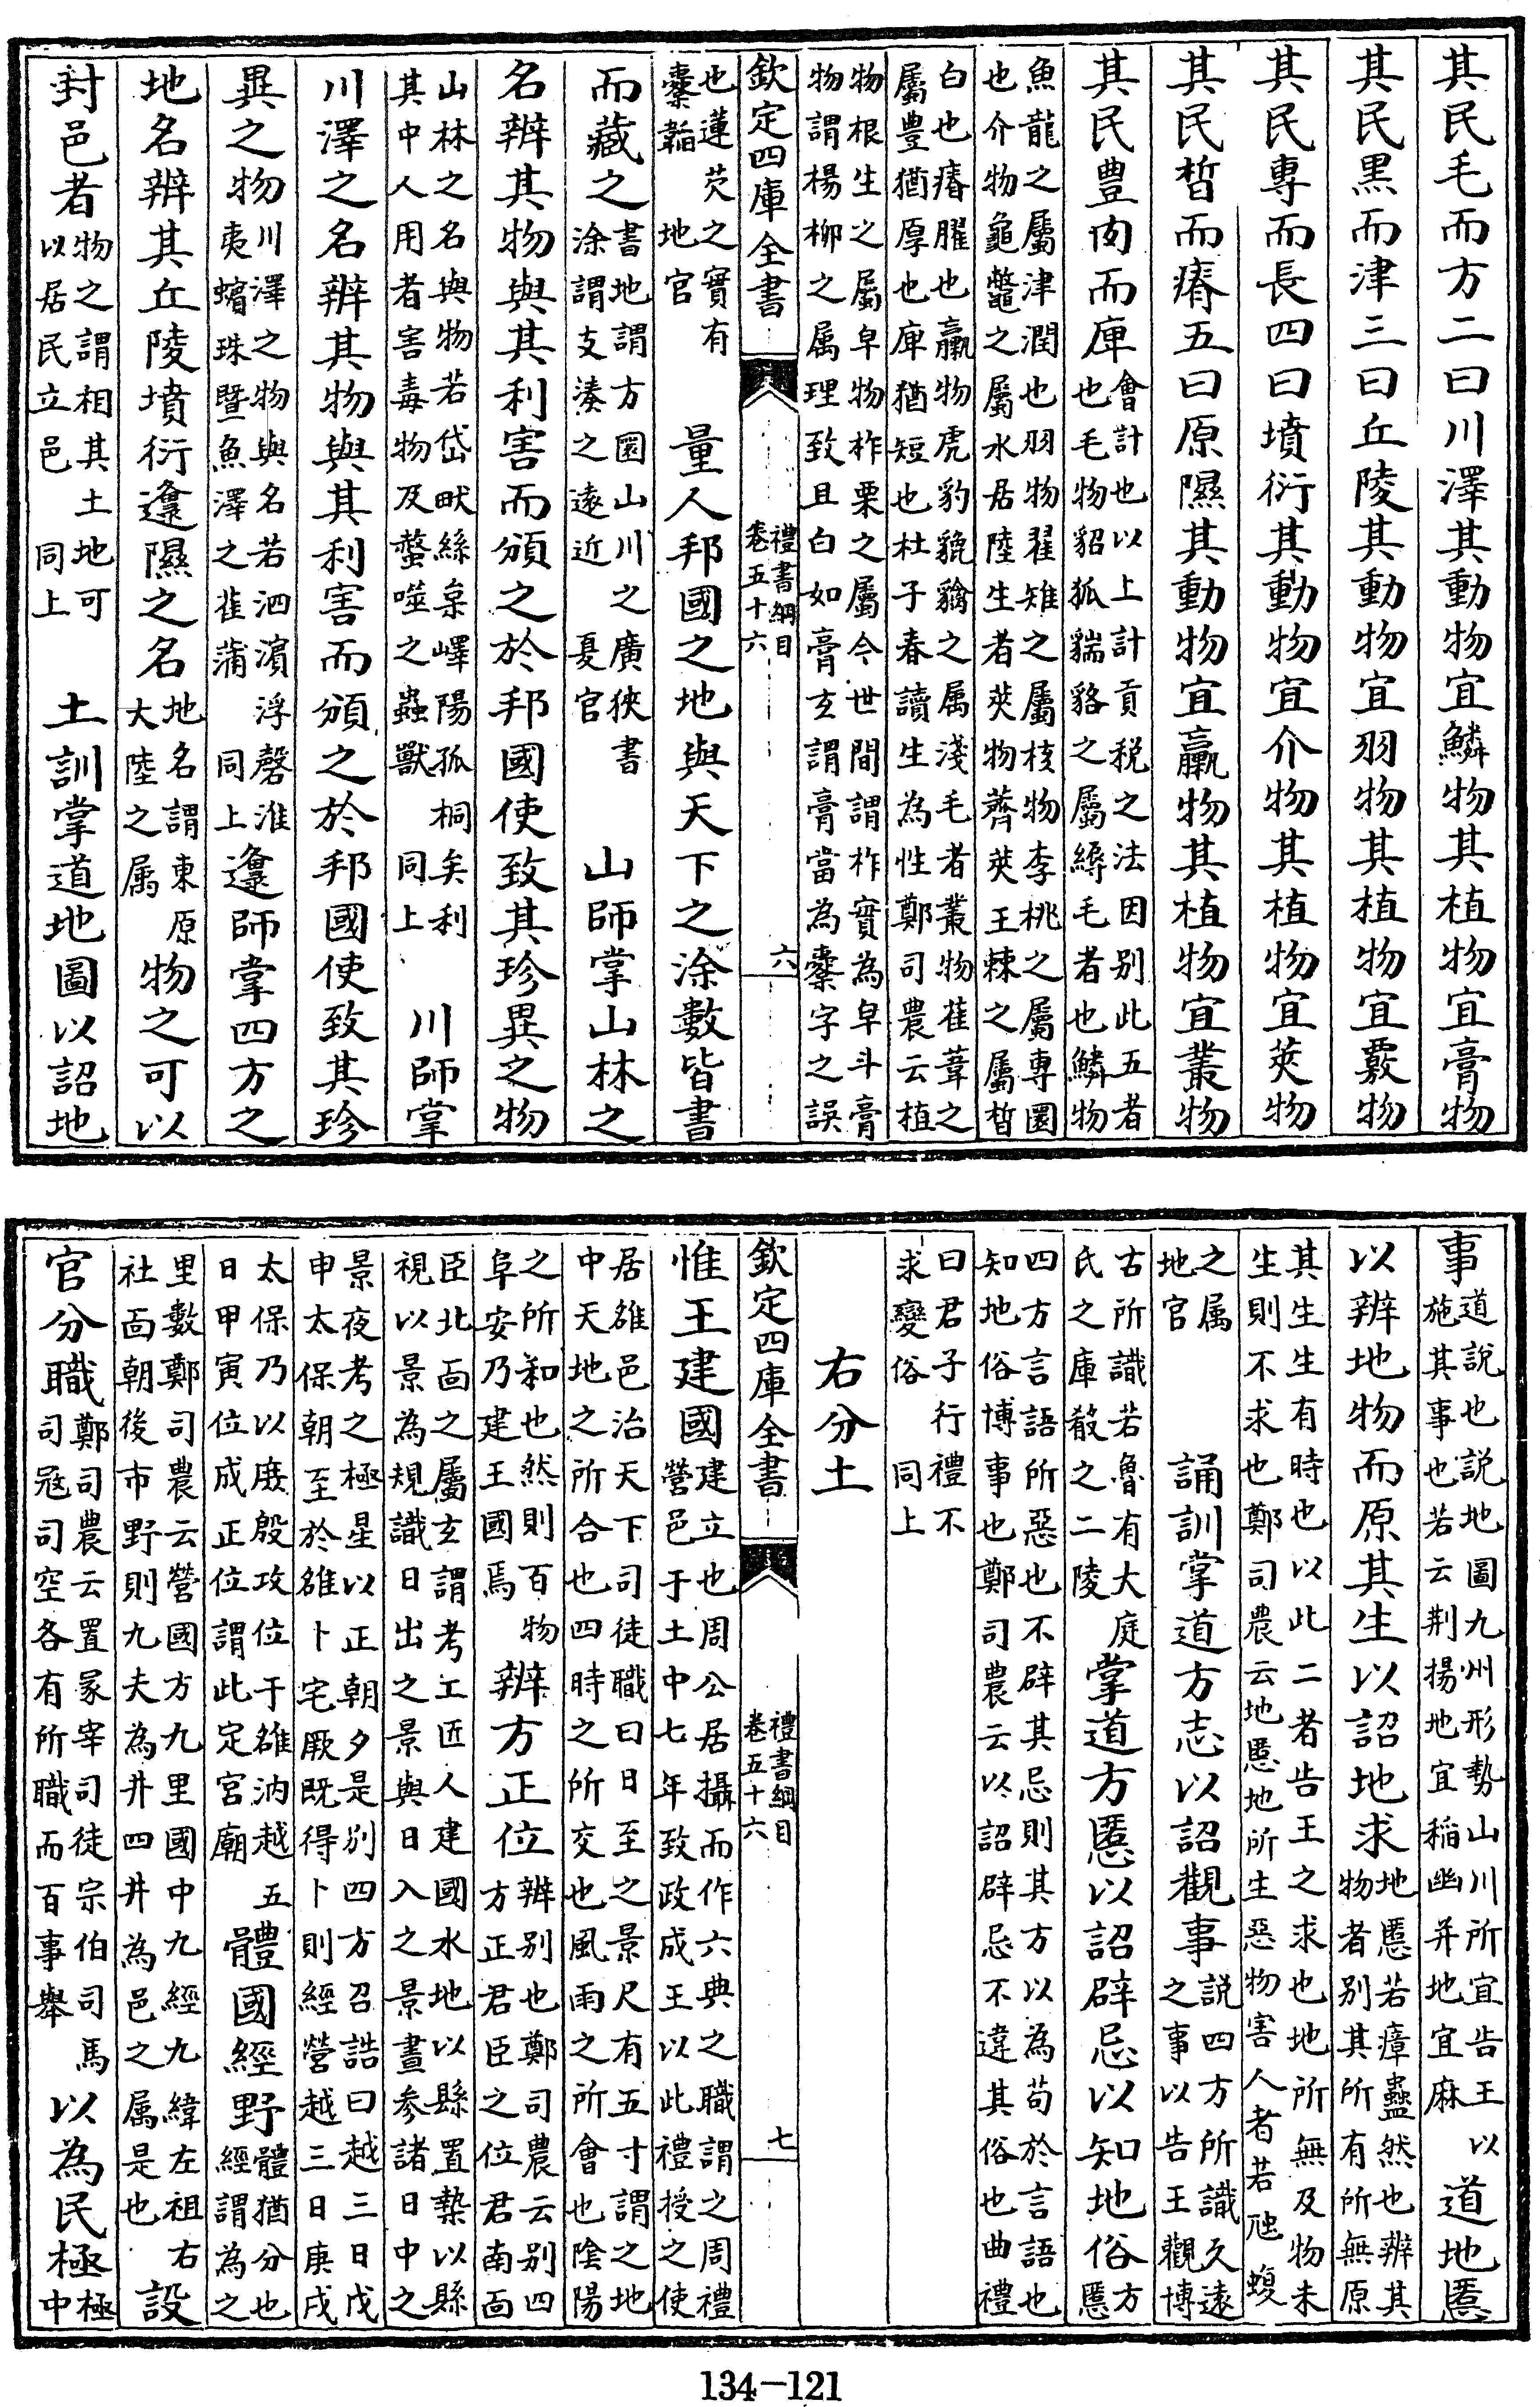 其民毛而方二曰川澤其動物宜鱗物其植物宜膏物
其民黒而津三曰丘陵其動物宜羽物其植物宜覈物
其民專而長四曰墳衍其動物宜介物其植物宜莢物
其民晳而瘠五曰原隰其動物宜臝物其植物宜叢物
其民豐肉而庳會計也以上計貢税之法因别此五者也毛物貂狐貒貉之屬縟毛者也鱗物
魚龍之屬津潤也羽物翟雉之屬核物李桃之屬專圜也介物龜鼈之屬水居陸生者莢物薺莢王棘之屬晳
白也瘠臞也臝物虎豹貔貐之属淺毛者叢物萑葦之屬豊猶厚也庳猶短也杜子春讀生為性鄭司農云植
物根生之屬皁物柞栗之屬今世間謂柞實為皁斗膏物謂楊柳之属理致且白如膏玄謂膏當為櫜字之誤
欽定四庫全書 禮書綱目 卷五十六 六
也蓮芡之實有櫜韜 地官 量人邦國之地與天下之涂數皆書
而藏之書地謂方圜山川之廣狹書涂謂支湊之遠近 夏官 山師掌山林之
名辨其物與其利害而頒之於邦國使致其珍異之物
山林之名與物若岱畎絲枲嶧陽孤桐矣利其中人用者害毒物及螫噬之蟲獸 同上 川師掌
川澤之名辨其物與其利害而頒之於邦國使致其珍
異之物川澤之物與名若泗濱浮磬淮夷蠙珠暨魚澤之萑蒲 同上 邍師掌四方之
地名辨其丘陵墳衍邍隰之名地名謂東原大陸之属物之可以
封邑者物之謂相其土地可以居民立邑 同上 土訓掌道地圖以詔地
事道說也説地圖九州形勢山川所宜告王以施其事也若云荆揚地宜稻幽并地宜麻道地慝
以辨地物而原其生以詔地求地慝若瘴蠱然也辨其物者别其所有所無原
其生生有時也以此二者告王之求也地所無及物未生則不求也鄭司農云地慝地所生惡物害人者若虺蝮
之属地官 誦訓掌道方志以詔觀事説四方所識久遠之事以告王觀博
古所識若魯有大庭氏之庫殽之二陵掌道方慝以詔辟忌以知地俗方慝
四方言語所惡也不辟其忌則其方以為苟於言語也知地俗博事也鄭司農云以詔辟忌不違其俗也曲禮
曰君子行禮不求變俗 同上
右分土
欽定四庫全書 禮書綱目 卷五十六 七
惟王建國建立也周公居攝而作六典之職謂之周禮營邑于土中七年致政成王以此禮授之使
居雒邑治天下司徒職曰日至之景尺有五寸謂之地中天地之所合也四時之所交也風雨之所會也陰陽
之所和也然則百物阜安乃建王國焉辨方正位辨别也鄭司農云别四方正君臣之位君南面
臣北面之屬玄謂考工匠人建國水地以縣置槷以縣視以景為規識日出之景與日入之景晝参諸日中之
景夜考之極星以正朝夕是别四方召誥曰越三日戊申太保朝至於雒卜宅厥既得卜則經營越三日庚戌
太保乃以庶殷攻位于雒汭越五日甲寅位成正位謂此定宮廟體國經野體猶分也經謂為之
里數鄭司農云營國方九里國中九經九緯左祖右社面朝後市野則九夫為井四井為邑之属是也設
官分職鄭司農云置冢宰司徒宗伯司馬司冦司空各有所職而百事舉以為民極極中
134—121